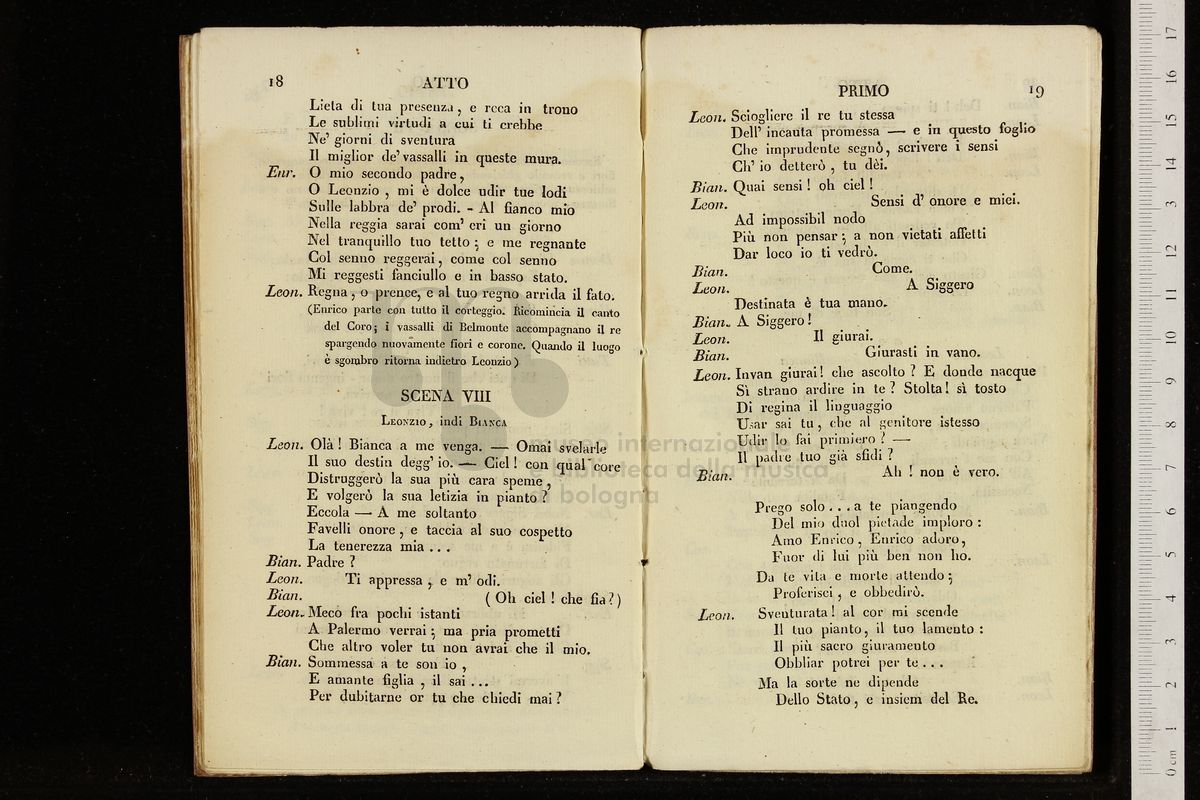 18 ATTO
Lieta di tua presenza, e reca in trono
Le sublimi virtudi a cui ti crebbe
Ne' giorni di sventura
Il miglior de' vassalli in queste mura.
Enr. O mio secondo padre,
O Leonzio, mi è dolce udir tue lodi
Sulle labbra de' prodi. - Al fianco mio
Nella reggia sarai com' eri un giorno
Nel tranquillo tuo tetto; e me regnante
Col senno reggerai, come col senno
Mi reggesti fanciullo e in basso stato.
Leon. Regna, o prence, e al tuo regno arrida il fato.
(Enrico parte con tutto il corteggio. Ricomincia il canto
del Coro; i vassalli di Belmonte accompagnano il re
spargendo nuovamente fiori e corone. Quando il luogo
è sgombro ritorna indietro Leonzio)
SCENA VIII
LEONZIO, indi BIANCA
Leon. Olà! Bianca a me venga. — Omai svelarle
Il suo destin degg' io. — Ciel! con qual core
Distruggerò la sua più cara speme,
E volgerò la sua letizia in pianto?
Eccola — A me soltanto
Favelli onore, e taccia al suo cospetto
La tenerezza mia ...
Bian. Padre?
Leon. Ti appressa, e m' odi.
Bian. (Oh ciel! che fia?)
Leon. Meco fra pochi istanti
A Palermo verrai; ma pria prometti
Che altro voler tu non avrai che il mio.
Bian. Sommessa a te son io,
E amante figlia, il sai ...
Per dubitarne or tu che chiedi mai?
PRIMO 19
Leon. Sciogliere il re tu stessa
Dell' incauta promessa — e in questo foglio
Che imprudente segnò, scrivere i sensi
Ch' io detterò, tu dèi.
Bian. Quai sensi! oh ciel!
Leon. Sensi d' onore e miei.
Ad impossibil nodo
Più non pensar; a non vietati affetti
Dar loco io ti vedrò.
Bian. Come.
Leon. A Siggero
Destinata è tua mano.
Bian. A Siggero!
Leon. Il giurai.
Bian. Giurasti in vano.
Leon. Invan giurai! che ascolto? E donde nacque
Sì strano ardire in te? Stolta! sì tosto
Di regina il linguaggio
Usar sai tu, che al genitore istesso
Udir lo fai primiero? —
Il padre tuo già sfidi?
Bian. Ah! non è vero.
Prego solo ... a te piangendo
Del mio duol pietade imploro:
Amo Enrico, Enrico adoro,
Fuor di lui più ben non ho.
Da te vita e morte attendo;
Proferisci, e obbedirò.
Leon. Sventurata! al cor mi scende
Il tuo pianto, il tuo lamento:
Il più sacro giuramento
Obbliar potrei per te ...
Ma la sorte ne dipende
Dello Stato, e insiem del Re.
museo internazionale
e biblioteca della musica
di bologna
0 cm 1 2 3 4 5 6 7 8 9 10 11 12 13 14 15 16 17